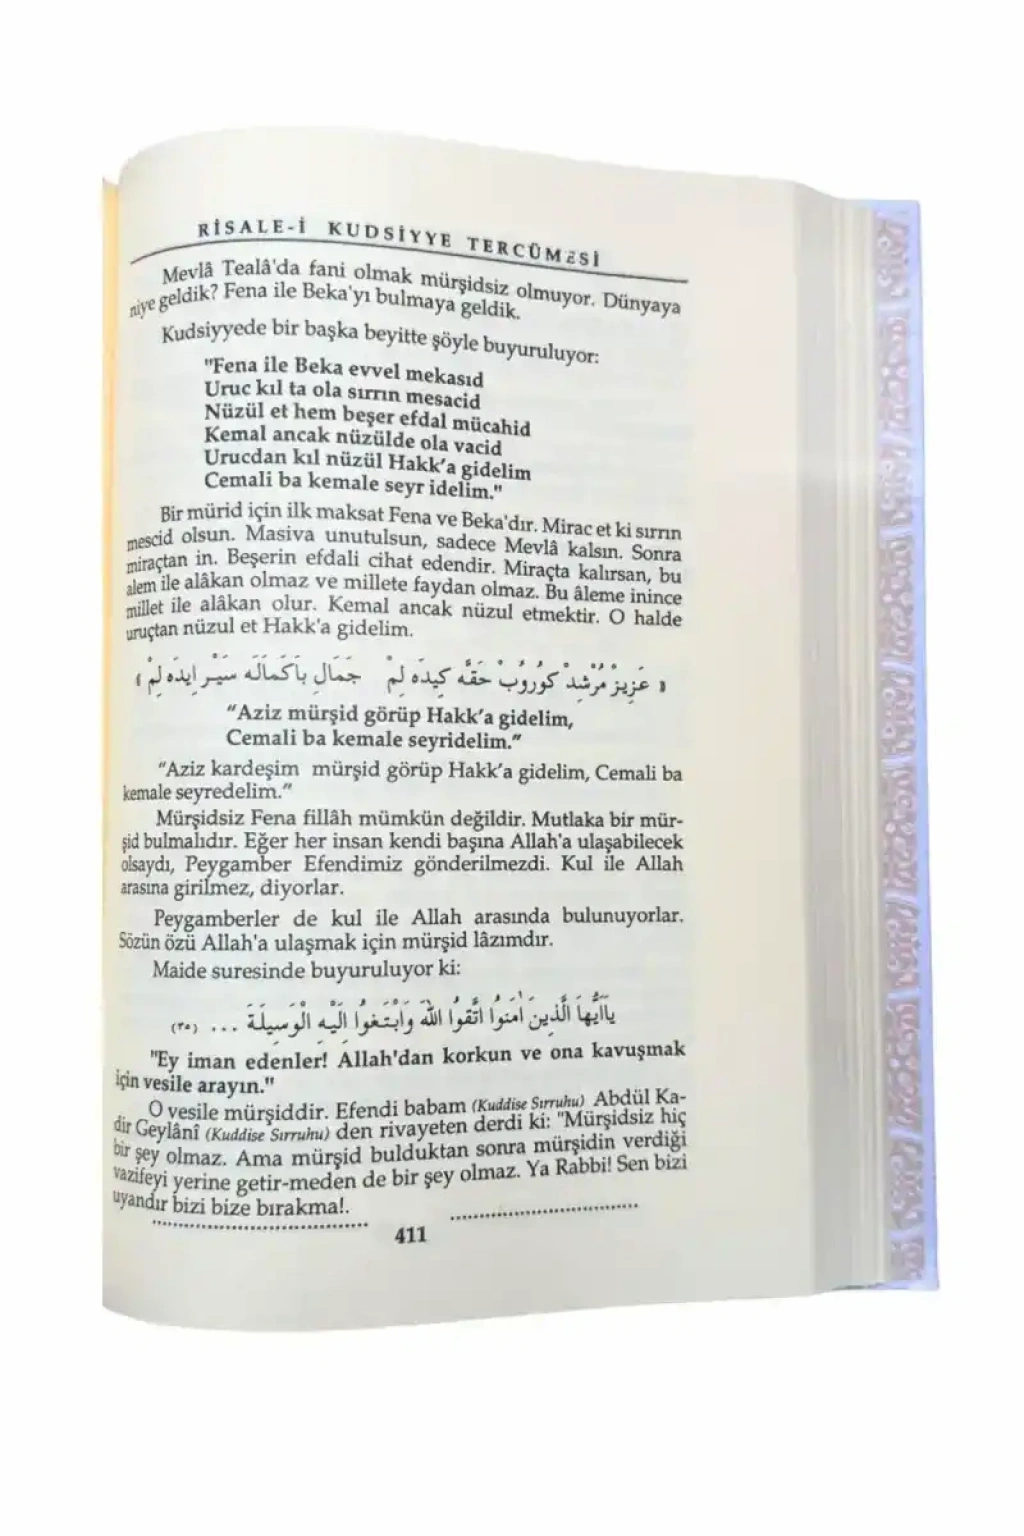 RİSALE-İ KUDSİYYE TERCÜMESİ
Mevlâ Tealâ'da fani olmak mürşidsiz olmuyor. Dünyaya
niye geldik? Fena ile Beka'yı bulmaya geldik.
Kudsiyyede bir başka beyitte şöyle buyuruluyor:
"Fena ile Beka evvel mekasıd
Uruc kıl ta ola sırrın mesacid
Nüzül et hem beşer efdal mücahid
Kemal ancak nüzülde ola vacid
Urucdan kıl nüzül Hakk'a gidelim
Cemali ba kemale seyr idelim."
Bir mürid için ilk maksat Fena ve Beka'dır. Mirac et ki sırrın
mescid olsun. Masiva unutulsun, sadece Mevlâ kalsın. Sonra
miraçtan in. Beşerin efdali cihat edendir. Miraçta kalırsan, bu
alem ile alâkan olmaz ve millete faydan olmaz. Bu âleme inince
millet ile alâkan olur. Kemal ancak nüzul etmektir. O halde
uruçtan nüzul et Hakk'a gidelim.
« عَزِيزْ مُرْشِدْ كُورُوبْ حَقَّه كِيدَه لِمْ جَمَالِ بَاكَمَالَه سَيْر اِيدَه لِمْ »
"Aziz mürşid görüp Hakk'a gidelim,
Cemali ba kemale seyridelim."
"Aziz kardeşim mürşid görüp Hakk'a gidelim, Cemali ba
kemale seyredelim."
Mürşidsiz Fena fillâh mümkün değildir. Mutlaka bir mür-
şid bulmalıdır. Eğer her insan kendi başına Allah'a ulaşabilecek
olsaydı, Peygamber Efendimiz gönderilmezdi. Kul ile Allah
arasına girilmez, diyorlar.
Peygamberler de kul ile Allah arasında bulunuyorlar.
Sözün özü Allah'a ulaşmak için mürşid lâzımdır.
Maide suresinde buyuruluyor ki:
يَاأَيُّهَا الَّذِينَ اٰمَنُوا اتَّقُوا اللّٰهَ وَابْتَغُوا اِلَيْهِ الْوَسِيلَةَ ... (٣٥)
"Ey iman edenler! Allah'dan korkun ve ona kavuşmak
için vesile arayın."
O vesile mürşiddir. Efendi babam (Kuddise Sırruhu) Abdül Ka-
dir Geylânî (Kuddise Sırruhu) den rivayeten derdi ki: "Mürşidsiz hiç
bir şey olmaz. Ama mürşid bulduktan sonra mürşidin verdiği
vazifeyi yerine getir-meden de bir şey olmaz. Ya Rabbi! Sen bizi
uyandır bizi bize bırakma!.
411